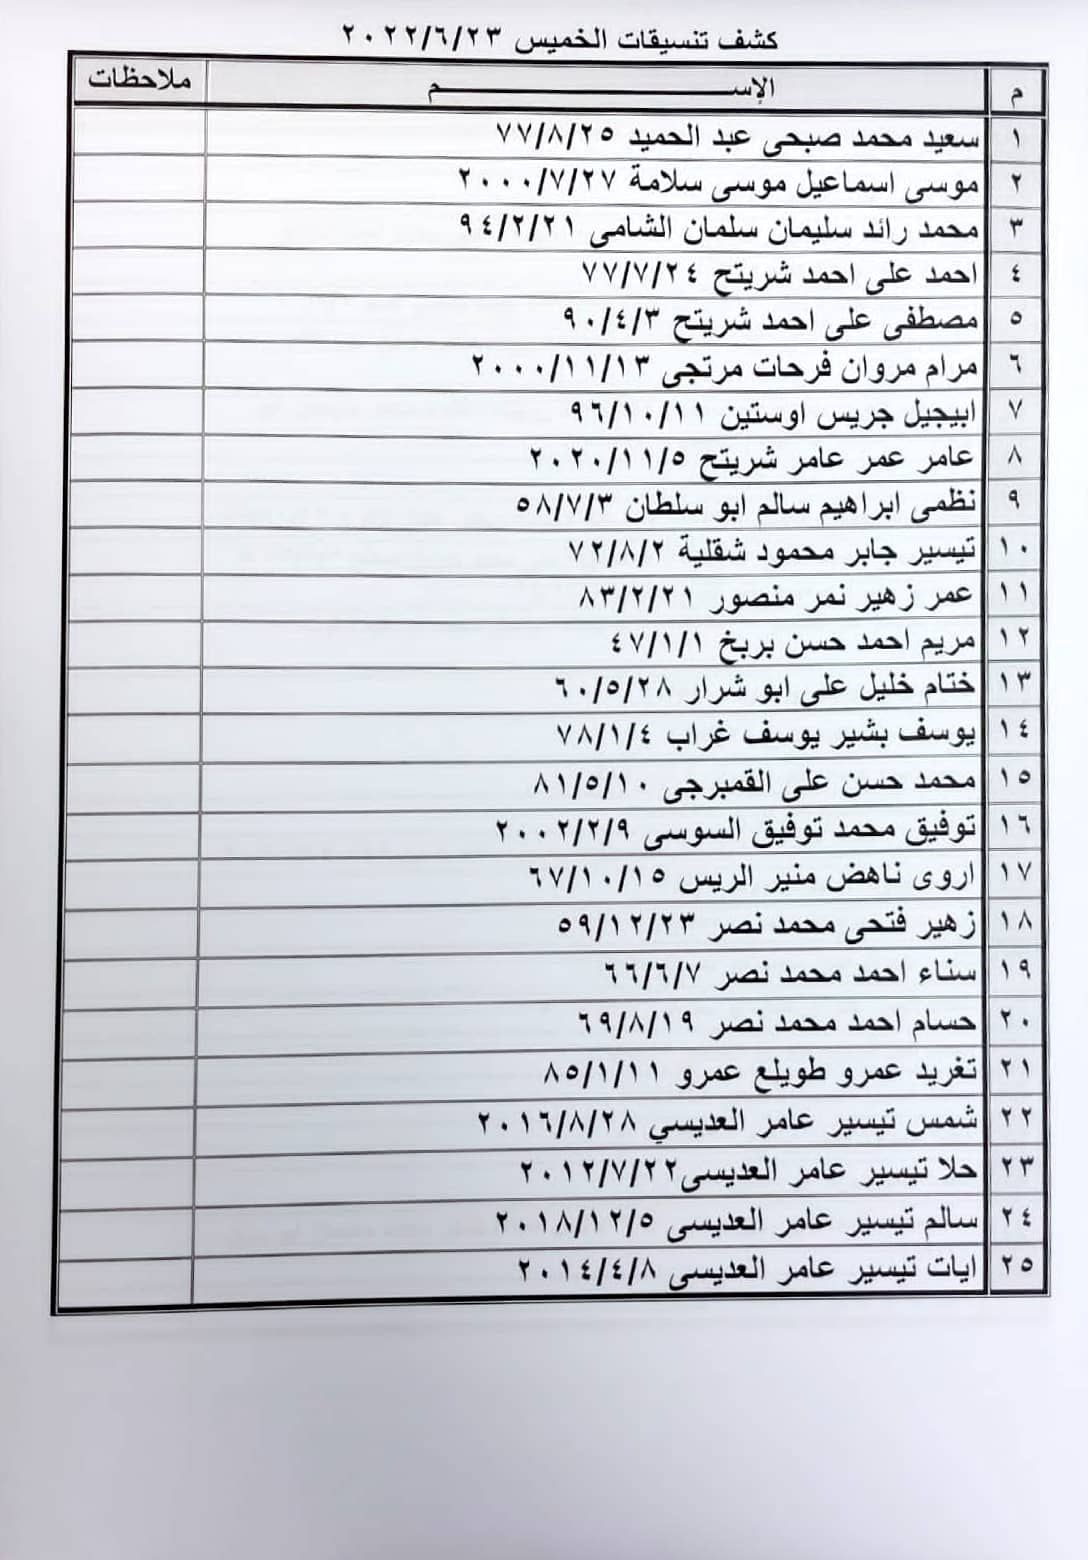 كشف تنسيقات الخميس ٢٠٢٢/٦/٢٣
م الإســـــــــــــــــم ملاحظات
١ سعيد محمد صبحى عبد الحميد ٧٧/٨/٢٥
٢ موسى اسماعيل موسى سلامة ٢٠٠٠/٧/٢٧
٣ محمد رائد سليمان سلمان الشامى ٩٤/٢/٢١
٤ احمد على احمد شريتح ٧٧/٧/٢٤
٥ مصطفى على احمد شريتح ٩٠/٤/٣
٦ مرام مروان فرحات مرتجى ٢٠٠٠/١١/١٣
٧ ابيجيل جريس اوستين ٩٦/١٠/١١
٨ عامر عمر عامر شريتح ٢٠٢٠/١١/٥
٩ نظمى ابراهيم سالم ابو سلطان ٥٨/٧/٣
١٠ تيسير جابر محمود شقلية ٧٢/٨/٢
١١ عمر زهير نمر منصور ٨٣/٢/٢١
١٢ مريم احمد حسن بربخ ٤٧/١/١
١٣ ختام خليل على ابو شرار ٦٠/٥/٢٨
١٤ يوسف بشير يوسف غراب ٧٨/١/٤
١٥ محمد حسن على القمبرجى ٨١/٥/١٠
١٦ توفيق محمد توفيق السوسى ٢٠٠٢/٢/٩
١٧ اروى ناهض منير الريس ٦٧/١٠/١٥
١٨ زهير فتحى محمد نصر ٥٩/١٢/٢٣
١٩ سناء احمد محمد نصر ٦٦/٦/٧
٢٠ حسام احمد محمد نصر ٦٩/٨/١٩
٢١ تغريد عمرو طويلع عمرو ٨٥/١/١١
٢٢ شمس تيسير عامر العديسي ٢٠١٦/٨/٢٨
٢٣ حلا تيسير عامر العديسى٢٠١٢/٧/٢٢
٢٤ سالم تيسير عامر العديسى ٢٠١٨/١٢/٥
٢٥ ايات تيسير عامر العديسى ٢٠١٤/٤/٨